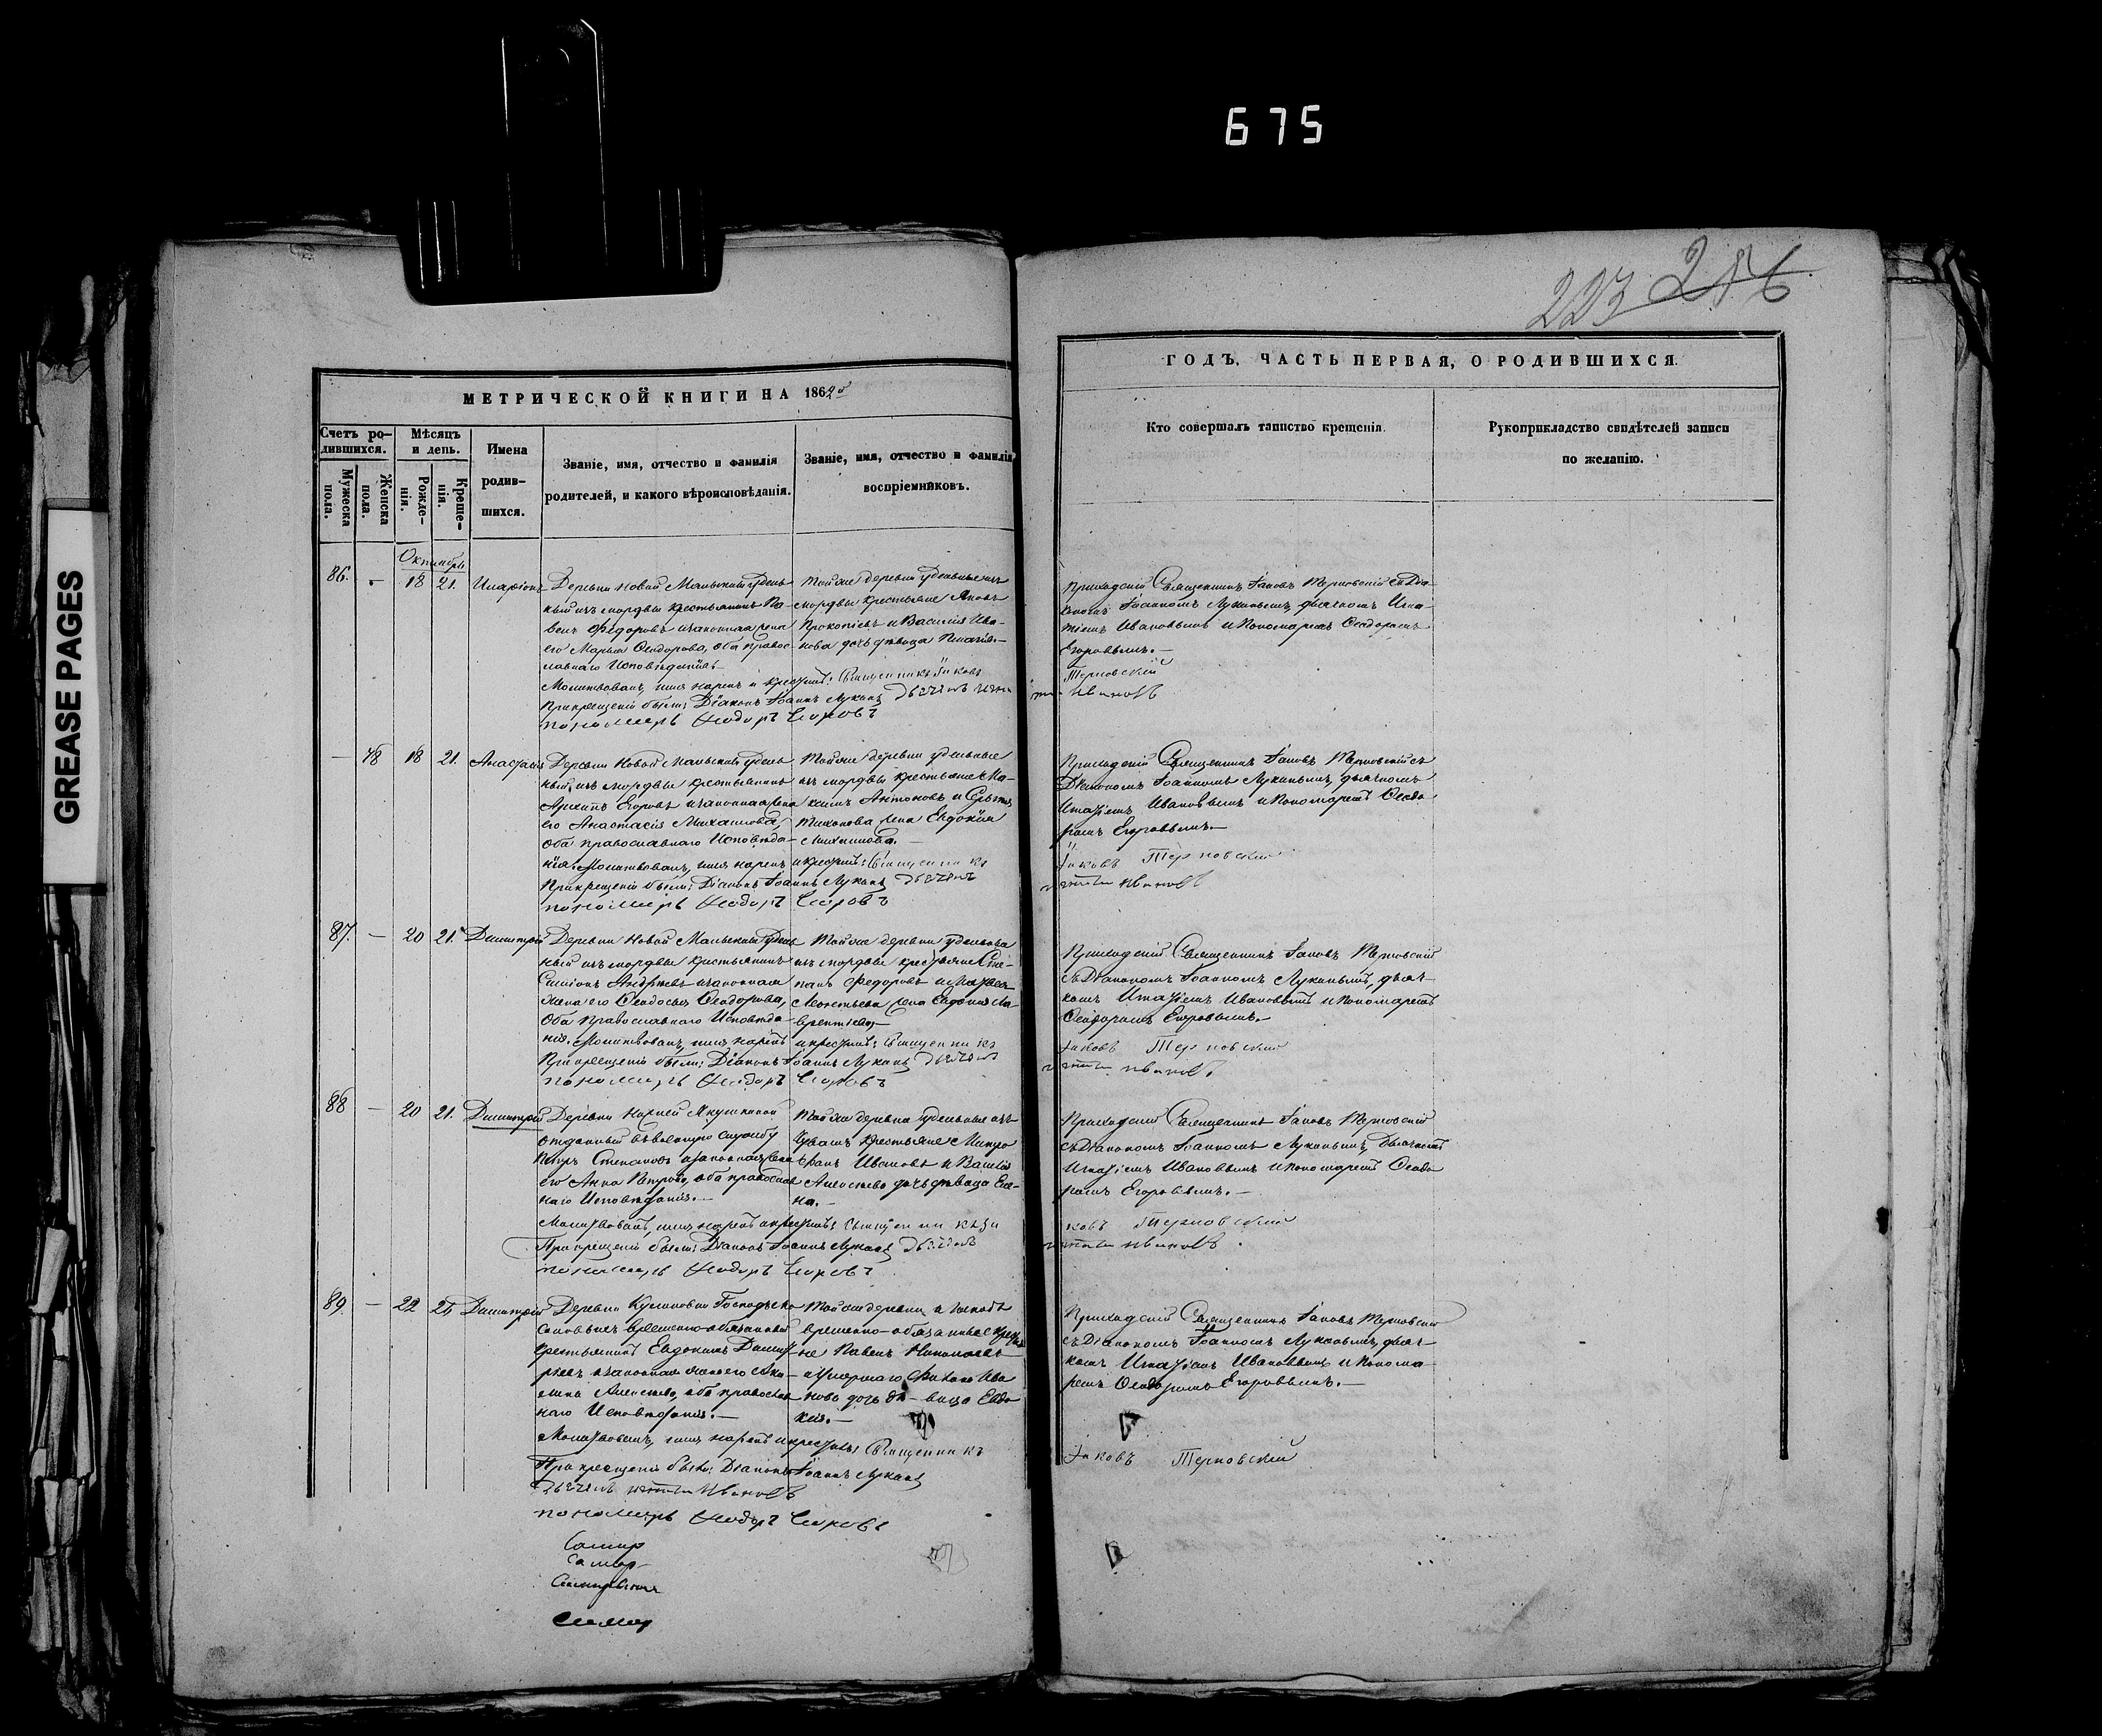 675
GREASE PAGES
223 216
МЕТРИЧЕСКОЙ КНИГИ НА 1862й
ГОДЪ, ЧАСТЬ ПЕРВАЯ, О РОДИВШИХСЯ.
Счетъ родившихся.
Мужеска пола.
Женска пола.
Мѣсяцъ и день.
Рожденія.
Крещенія.
Имена родившихся.
Званіе, имя, отчество и фамилія
родителей, и какого вѣроисповѣданія.
Званіе, имя, отчество и фамилія
воспріемниковъ.
Кто совершалъ таинство крещенія.
Рукоприкладство свидѣтелей записи
по желанію.
Октябрь
86. - 18 21. Иларіонъ
Деревни Новой Малыклы удѣль-
ный изъ мордвы крестьянинъ Па-
велъ Федоровъ и законная жена
его Марья Ѳеодорова, оба правос-
лавнаго Исповѣданія
Тойже деревни удѣльные изъ
мордвы крестьяне Яковъ
Прокопіевъ и Василія Ива-
нова дочь дѣвица
Приходскій Священникъ Іаковъ Терновскій съ Діа-
кономъ Іоанномъ Лукинымъ, дьячкомъ Игна-
тіемъ Ивановымъ и Пономаремъ Ѳеодоромъ
Егоровымъ.-
Молитвовалъ, имя нарекъ и крестилъ: Священникъ Іаковъ Терновскій
При крещеніи были: Діаконъ Іоаннъ Лукинъ Дьячекъ Ивановъ
пономарь Ѳеодоръ Егоровъ
- 48 18 21. Анастасія
Деревни Новой Малыклы удѣль-
ный изъ мордвы крестьянинъ
Архипъ Егоровъ и законная жена
его Анастасія Михаилова,
оба православнаго Исповѣда-
нія.
Тойже деревни удѣльные
изъ мордвы крестьяне
Антоновъ и
Тихонова жена Евдокія
Приходскій Священникъ Іаковъ Терновскій съ
Діакономъ Іоанномъ Лукинымъ, дьячкомъ
Игнатіемъ Ивановымъ и Пономаремъ Ѳеодо-
ромъ Егоровымъ.-
Молитвовалъ, имя нарекъ и крестилъ: Священникъ Іаковъ Терновскій
При крещеніи были: Діаконъ Іоаннъ Лукинъ Дьячекъ Ивановъ
пономарь Ѳеодоръ Егоровъ
87. - 20 21. Димитрій
Деревни Новой Малыклы удѣль-
ный изъ мордвы крестьянинъ
Симіонъ Андреевъ и законная
жена его Ѳеодосья Ѳеодорова,
Оба Православнаго Исповѣда-
нія.
Тойже деревни удѣльнова
изъ мордвы крестьяне Сте-
панъ Федоровъ и Матвея
Леонтьева жена Евдокія Ла-
врентіева
Приходскій Священникъ Іаковъ Терновскій
съ Діакономъ Іоанномъ Лукинымъ, дьяч-
комъ Игнатіемъ Ивановымъ и Пономаремъ
Ѳеодоромъ Егоровымъ.-
Молитвовалъ, имя нарекъ и крестилъ: Священникъ Іаковъ Терновскій
При крещеніи были: Діаконъ Іоаннъ Лукинъ Дьячекъ Ивановъ
пономарь Ѳеодоръ Егоровъ
88 - 20 21. Димитрій
Деревни Якушкиной
отданный въ военную службу
Петръ Степановъ и законная жена
его Анна Петрова, оба православ-
наго Исповѣданія.-
Тойже деревни удѣльные изъ
Чувашъ крестьяне Митро-
фанъ Ивановъ и Василія
Алексѣева дочь дѣвица Еле-
на.-
Приходскій Священникъ Іаковъ Терновскій
съ Діакономъ Іоанномъ Лукинымъ, Дьячкомъ
Игнатіемъ Ивановымъ и Пономаремъ Ѳеодо-
ромъ Егоровымъ.-
Молитвовалъ, имя нарекъ и крестилъ: Священникъ Іаковъ Терновскій
При крещеніи были: Діаконъ Іоаннъ Лукинъ Дьячекъ Ивановъ
пономарь Ѳеодоръ Егоровъ
89. - 22 21, Димитрій
временно-обязанный
крестьянинъ Евдокимъ Димит-
ріевъ и законная жена его Аку-
лина Алексѣева, оба православ-
наго Исповѣданія.-
Тойже деревни и Господъ
временно-обязанные крестья-
не Павелъ Николаевъ
и умершаго Ива-
нова дочь дѣ-вица Евдо-
кія.-
Приходскій Священникъ Іаковъ Терновскій
съ Діакономъ Іоанномъ Лукинымъ, дьяч-
комъ Игнатіемъ Ивановымъ и Понома-
ремъ Ѳеодоромъ Егоровымъ.-
Молитвовалъ, имя нарекъ и крестилъ: Священникъ Іаковъ Терновскій
При крещеніи были: Діаконъ Іоаннъ Лукинъ
Дьячекъ Ивановъ
пономарь Ѳеодоръ Егоровъ